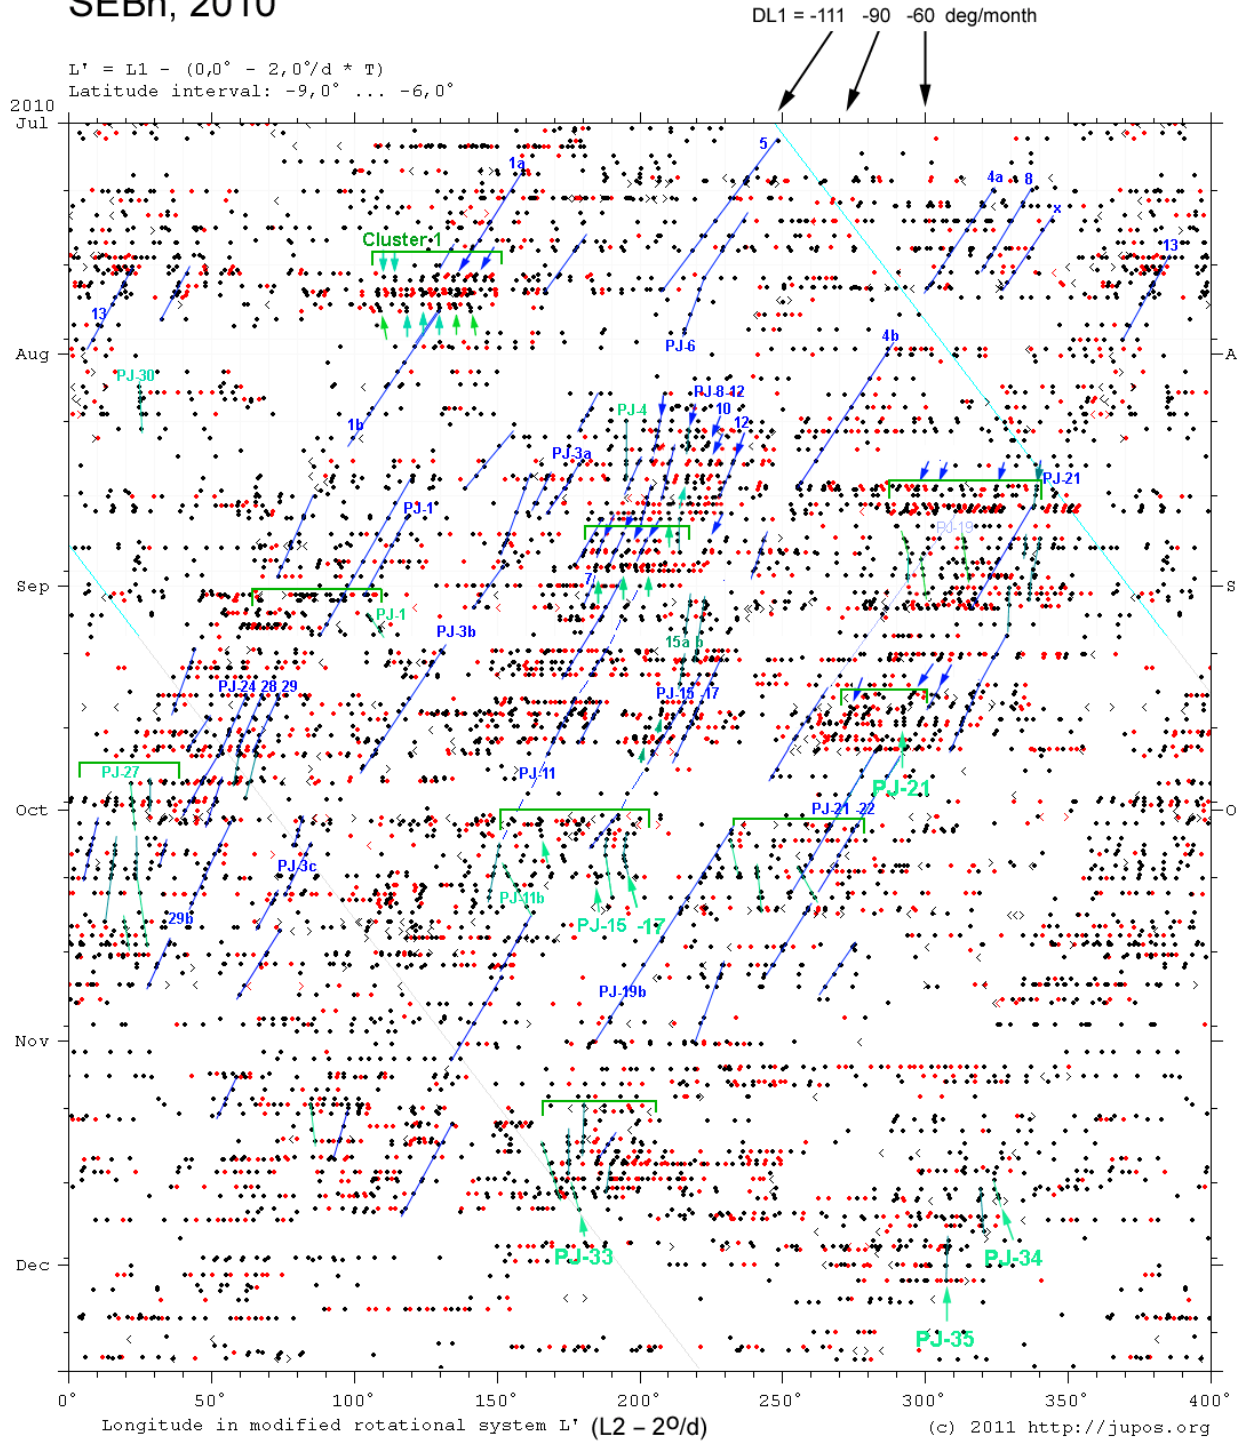 SEBn, 2010
DL1 = -111 -90 -60 deg/month
L' = L1 - (0,0° - 2,0°/d * T)
Latitude interval: -9,0° ... -6,0°
2010
Jul
5
1a
4a 8
x
Cluster 1
13
13
PJ-6
4b
Aug
A
PJ-30
PJ-8-12
PJ-4
10
12
1b
PJ-3a
PJ-21
PJ-1
PJ-19
7
Sep
S
PJ-1
PJ-3b
15a b
PJ-24 28 29
PJ-15 -17
PJ-27
PJ-11
PJ-21
Oct
PJ-21 -22
O
PJ-3c
PJ-11b
29b
PJ-15 -17
PJ-19b
Nov
PJ-33
PJ-34
Dec
PJ-35
0° 50° 100° 150° 200° 250° 300° 350° 400°
Longitude in modified rotational system L' (L2 – 2º/d)
(c) 2011 http://jupos.org